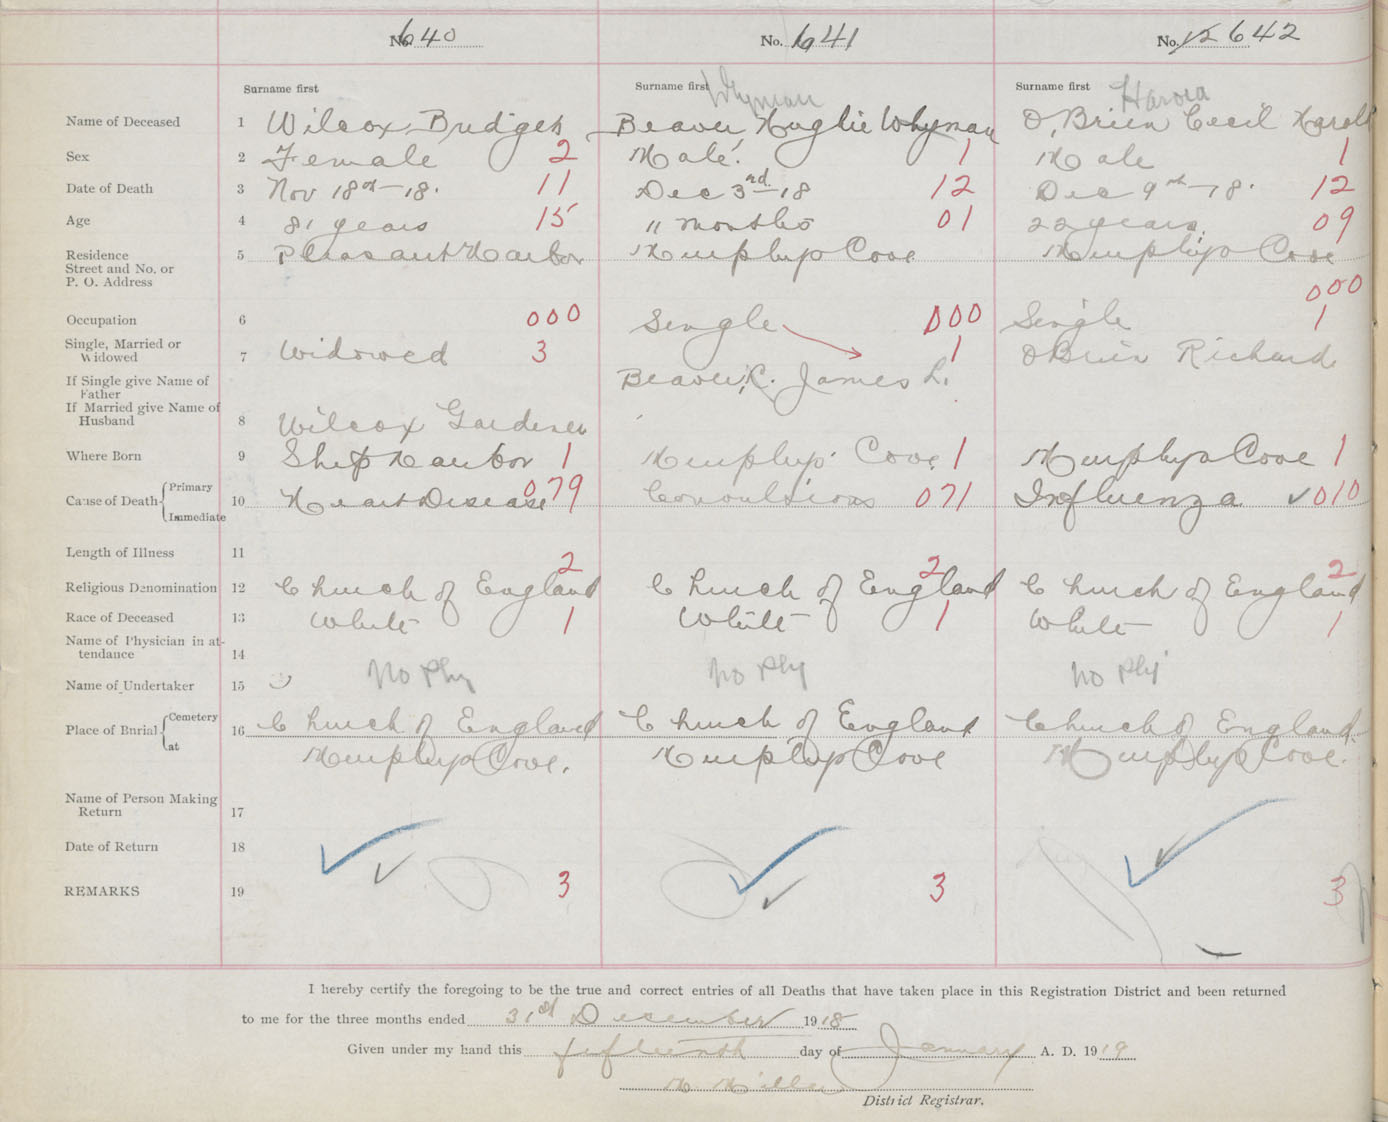 No. 640
No. 641
No. 12 642
Surname first
Surname first Whyman
Surname first Harold
Name of Deceased 1 Wilcox, Bridget Beaver, Hughie Whyman O,Brien Cecil Harold
Sex 2 Female 2 Male. 1 Male 1
Date of Death 3 Nov 18th-18. 11 Dec 3rd-18 12 Dec 9th-18. 12
Age 4 81 years 15 11 months 01 22 years. 09
Residence
Street and No. or
P. O. Address
5 Pleasant Harbor Murphys Cove Murphys Cove
Occupation 6 000 Single 000 Single 000
1
Single, Married or
Widowed
7 Widowed 3 1 OBrien Richard
If Single give Name of
Father
Beaver, James L.
If Married give Name of
Husband
8 Wilcox Gardener
Where Born 9 Ship Harbor 1 Murphys Cove 1 Murphys Cove 1
Cause of Death { Primary
Immediate
10 Heart Disease 079 Convulsions 071 Influenza ✓ 010
Length of Illness 11
Religious Denomination 12 Church of England 2 Church of England 2 Church of England 2
Race of Deceased 13 White 1 White 1 White 1
Name of Physician in at-
tendance
14 No Phy No Phy No Phy
Name of Undertaker 15
Place of Burial { Cemetery
at
16 Church of England Church of England Church of England
Murphys Cove. Murphys Cove Murphys Cove.
Name of Person Making
Return
17
Date of Return 18
REMARKS 19 3 3 3
I hereby certify the foregoing to be the true and correct entries of all Deaths that have taken place in this Registration District and been returned
to me for the three months ended 31st December 1918
Given under my hand this fifteenth day of January A. D. 1919
District Registrar.